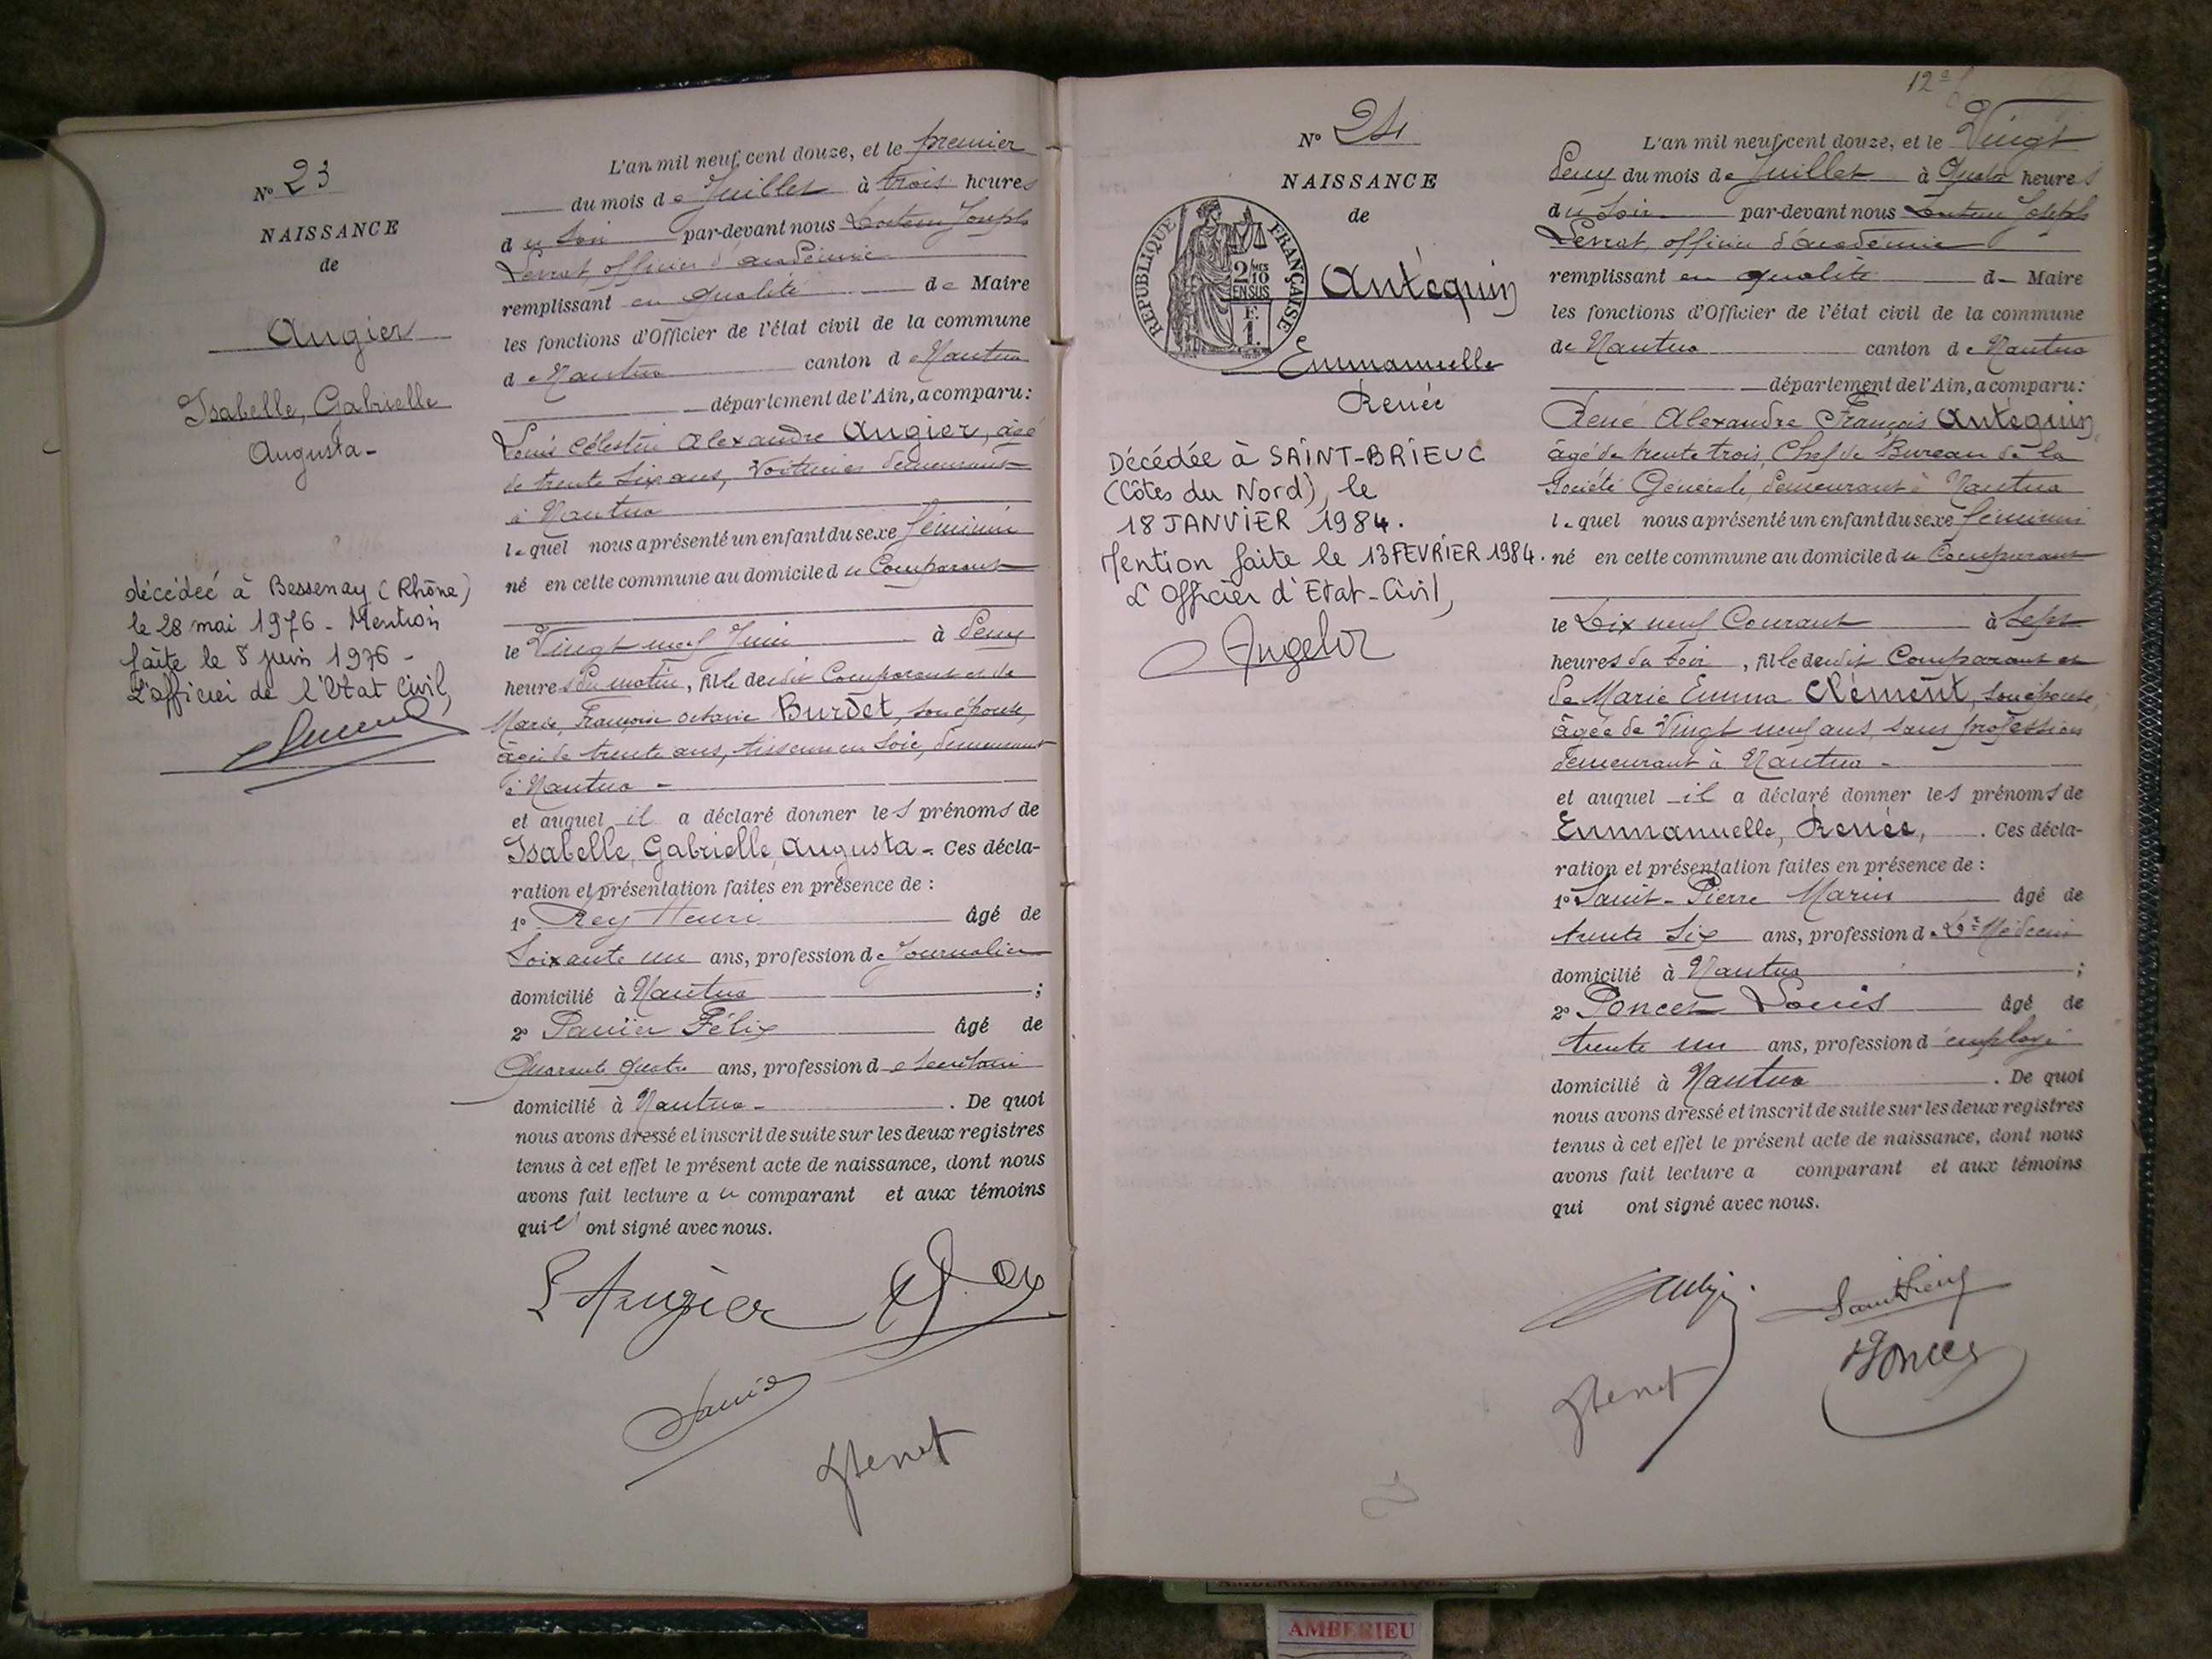 N° 23
NAISSANCE
de
Augier
Isabelle, Gabrielle
Augusta -
décédée à Bessenay (Rhône)
le 28 mai 1976 - Mention
faite le 8 juin 1976 -
L'officier de l'Etat Civil,
L'an mil neuf cent douze, et le premier
du mois de Juillet à trois heures
du soir par-devant nous Docteur Joseph
officier d'académie
remplissant en qualité de Maire
les fonctions d'Officier de l'état civil de la commune
de Nantua canton de Nantua
département de l'Ain, a comparu :
Louis Célestin Alexandre Augier, âgé
de trente six ans, Voiturier demeurant
à Nantua
lequel nous a présenté un enfant du sexe féminin
né en cette commune au domicile du Comparant
le Vingt neuf Juin à deux
heures du matin, fille dudit Comparant et de
Marie, Françoise Octavie Burdet, son épouse,
âgée de trente ans, tisseuse en soie, demeurant
à Nantua -
et auquel il a déclaré donner les prénoms de
Isabelle, Gabrielle, Augusta -. Ces décla-
ration et présentation faites en présence de :
1° Rey Henri âgé de
Soixante un ans, profession de Journalier
domicilié à Nantua ;
2° Félix âgé de
Quarante quatre ans, profession de secrétaire
domicilié à Nantua - . De quoi
nous avons dressé et inscrit de suite sur les deux registres
tenus à cet effet le présent acte de naissance, dont nous
avons fait lecture au comparant et aux témoins
qui ont signé avec nous.
L Augier
12
N° 24
NAISSANCE
de
RÉPUBLIQUE FRANÇAISE
2/10
EN SUS
F.
1.
Antéquin
Emmanuelle
Renée
Décédée à SAINT-BRIEUC
(Côtes du Nord), le
18 JANVIER 1984.
Mention faite le 13 FEVRIER 1984.
L'Officier d'Etat-Civil,
L'an mil neuf cent douze, et le Vingt
Deux du mois de Juillet à Quatre heures
du soir par-devant nous Docteur Joseph
officier d'académie
remplissant en qualité d- Maire
les fonctions d'Officier de l'état civil de la commune
de Nantua canton de Nantua
département de l'Ain, a comparu :
René Alexandre François Antéquin,
âgé de trente trois, Chef de Bureau de la
Société Générale, demeurant à Nantua
lequel nous a présenté un enfant du sexe féminin
né en cette commune au domicile du Comparant
le Dix neuf Courant à Sept
heures du soir, fille dudit Comparant et
de Marie Emma Clément, son épouse,
âgée de Vingt neuf ans, sans profession
demeurant à Nantua -
et auquel il a déclaré donner les prénoms de
Emmanuelle, Renée, . Ces décla-
ration et présentation faites en présence de :
1° Saint-Pierre Marin âgé de
trente six ans, profession de Dr Médecin
domicilié à Nantua ;
2° Poncet Louis âgé de
trente un ans, profession d'employé
domicilié à Nantua . De quoi
nous avons dressé et inscrit de suite sur les deux registres
tenus à cet effet le présent acte de naissance, dont nous
avons fait lecture a comparant et aux témoins
qui ont signé avec nous.
Poncet
AMBERIEU